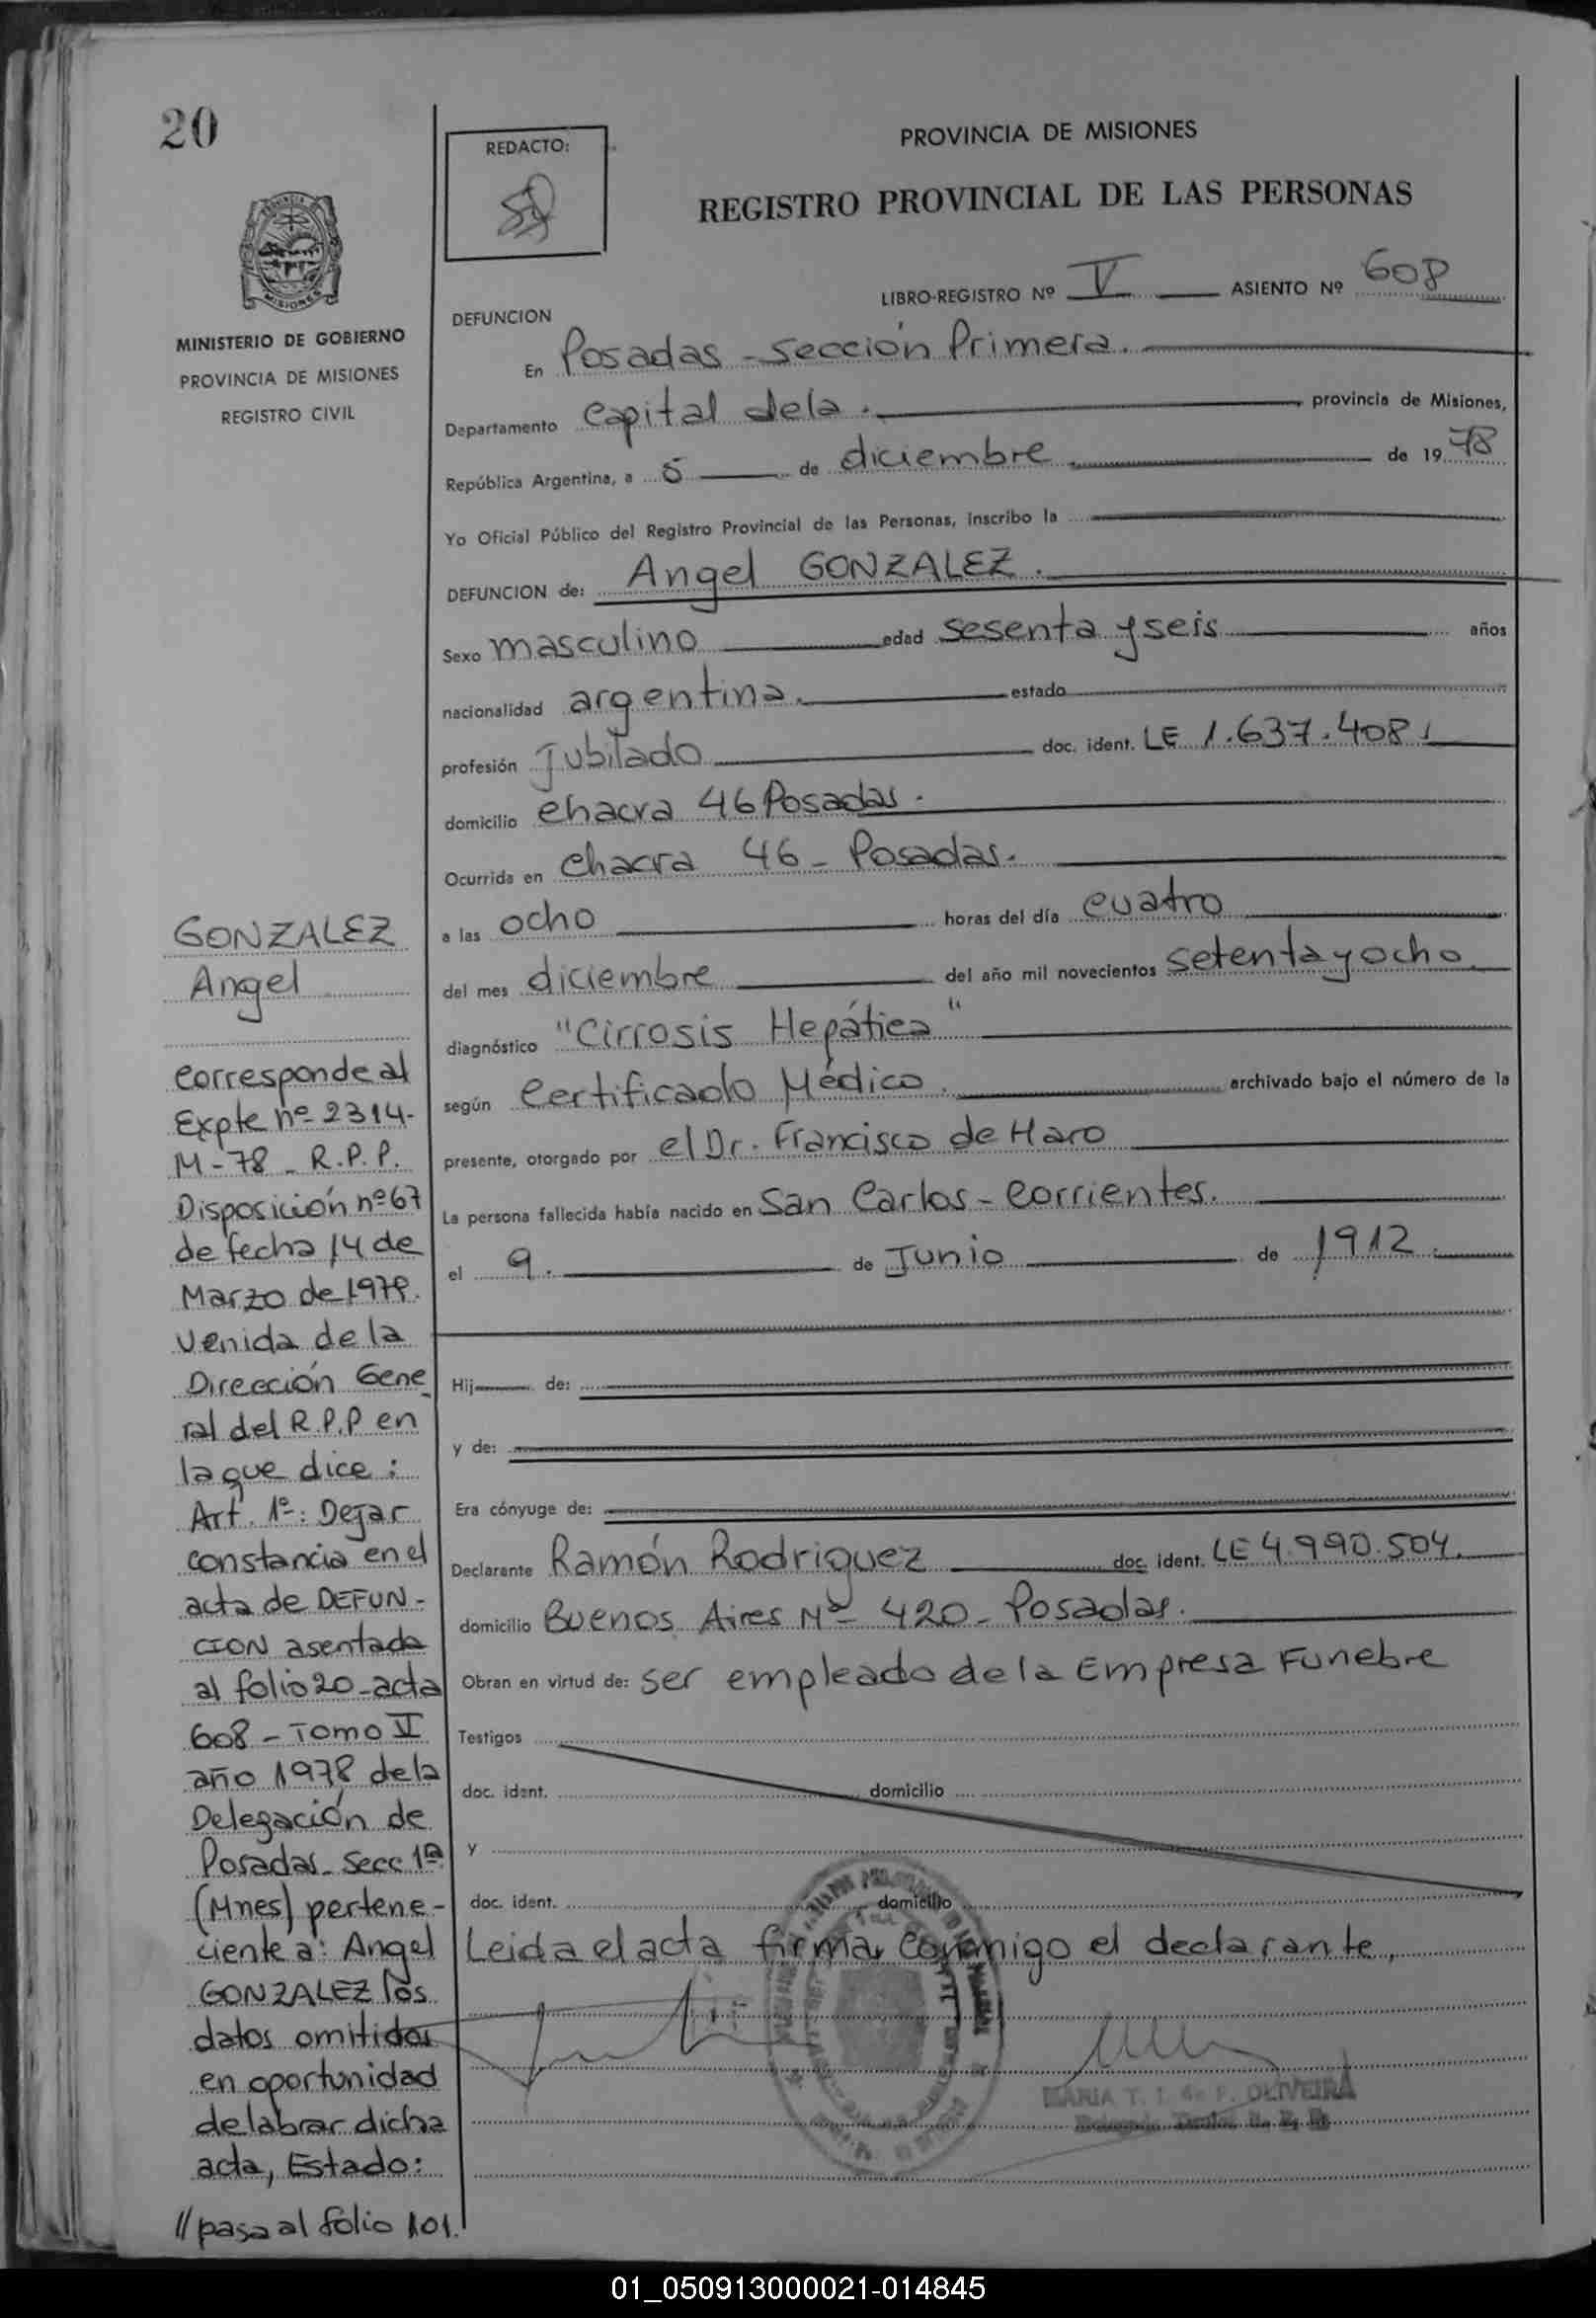 20
MINISTERIO DE GOBIERNO
PROVINCIA DE MISIONES
REGISTRO CIVIL
REDACTO:
PROVINCIA DE MISIONES
REGISTRO PROVINCIAL DE LAS PERSONAS
LIBRO-REGISTRO Nº V ASIENTO Nº 608
DEFUNCION
En Posadas - Sección Primera.
Departamento Capital de la. provincia de Misiones,
República Argentina, a 5 de diciembre de 1978
Yo Oficial Público del Registro Provincial de las Personas, inscribo la
DEFUNCION de: Angel GONZALEZ.
Sexo masculino edad sesenta y seis años
nacionalidad argentina. estado
profesión Jubilado doc. ident. LE 1.637.408
domicilio chacra 46 Posadas.
Ocurrida en chacra 46 - Posadas.
a las ocho horas del día cuatro
del mes diciembre del año mil novecientos setenta y ocho.
diagnóstico "Cirrosis Hepática"
según Certificado Médico. archivado bajo el número de la
presente, otorgado por el Dr. Francisco de Haro
La persona fallecida había nacido en San Carlos - Corrientes.
el 9. de Junio de 1912.
Hij de:
y de:
Era cónyuge de:
Declarante Ramón Rodriguez doc. ident. LE 4.990.504.
domicilio Buenos Aires Nº 420 - Posadas.
Obran en virtud de: ser empleado de la Empresa Funebre
Testigos
doc. ident. domicilio
y
doc. ident. domicilio
Leida el acta firma conmigo el declarante,
MARIA T. T. de F. OLIVEIRA
GONZALEZ
Angel
Corresponde al
Expte nº 2314-
M-78 - R.P.P.
Disposición nº 67
de fecha 14 de
Marzo de 1979.
Venida de la
Dirección Gene
ral del R.P.P en
la que dice:
Art. 1º: Dejar
constancia en el
acta de DEFUN-
CION asentada
al folio 20 - acta
608 - Tomo V
año 1978 de la
Delegación de
Posadas - Secc 1ª
(Mnes) pertene-
ciente a: Angel
GONZALEZ los
datos omitidos
en oportunidad
de labrar dicha
acta, Estado:
//pasa al folio 101.
01_050913000021-014845